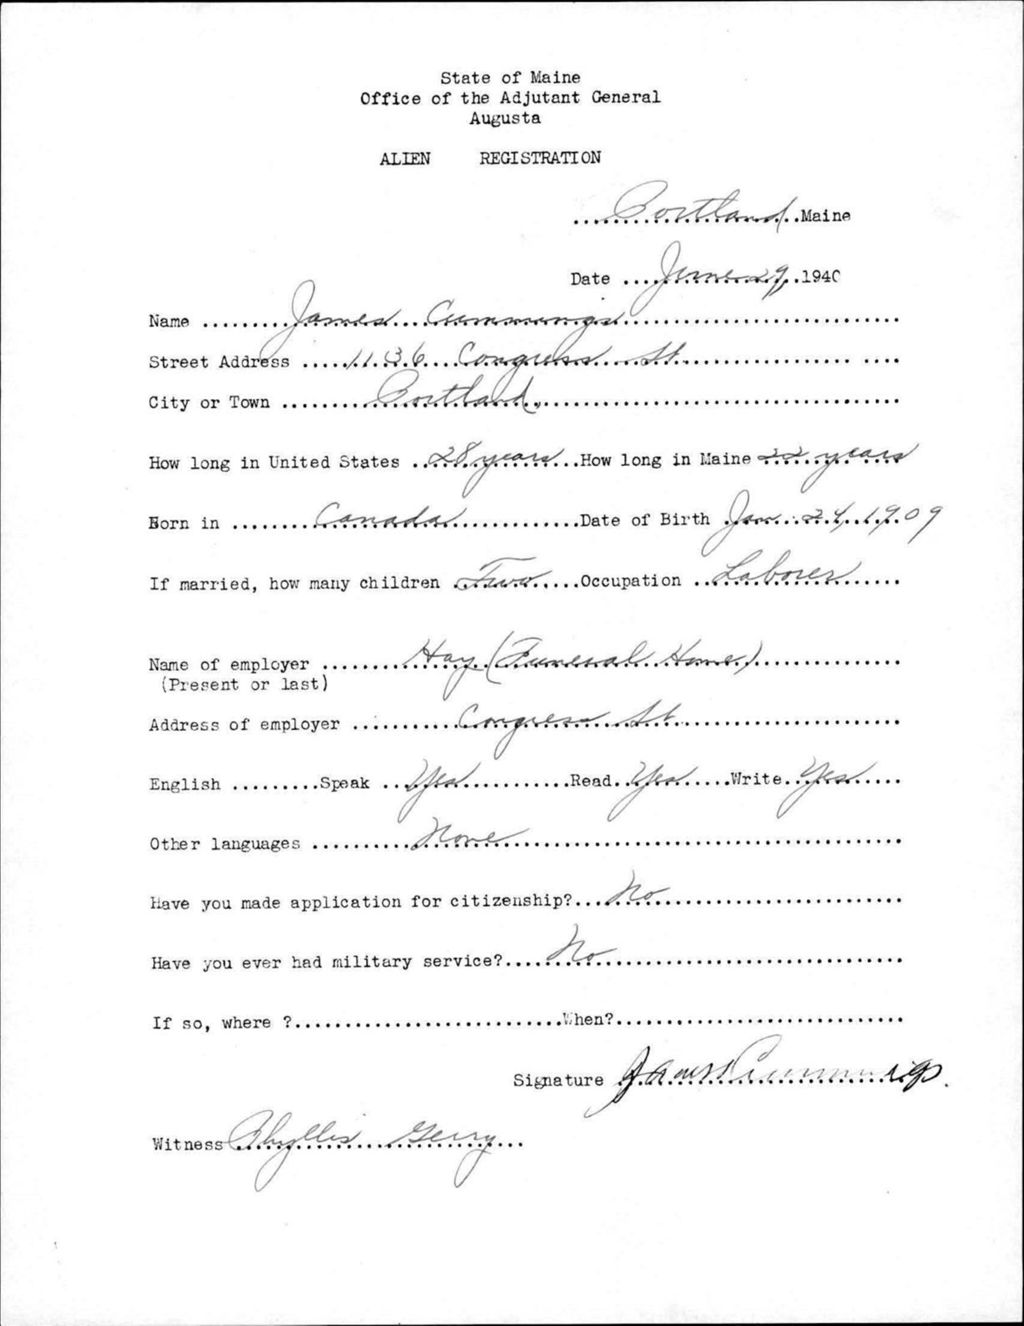 State of Maine
Office of the Adjutant General
Augusta
ALIEN REGISTRATION
Portland Maine
Date June 29, 1940
Name James Cummings
Street Address 1136 Congress St.
City or Town Portland
How long in United States 28 years How long in Maine 22 years
Born in Canada Date of Birth Jan. 24, 1909
If married, how many children Two Occupation Laborer
Name of employer Hay (Funeral Home)
(Present or last)
Address of employer Congress St
English Speak Yes Read Yes Write Yes
Other languages None
Have you made application for citizenship? No
Have you ever had military service? No
If so, where ? When?
Signature James Cummings
Witness Phyllis Gerry